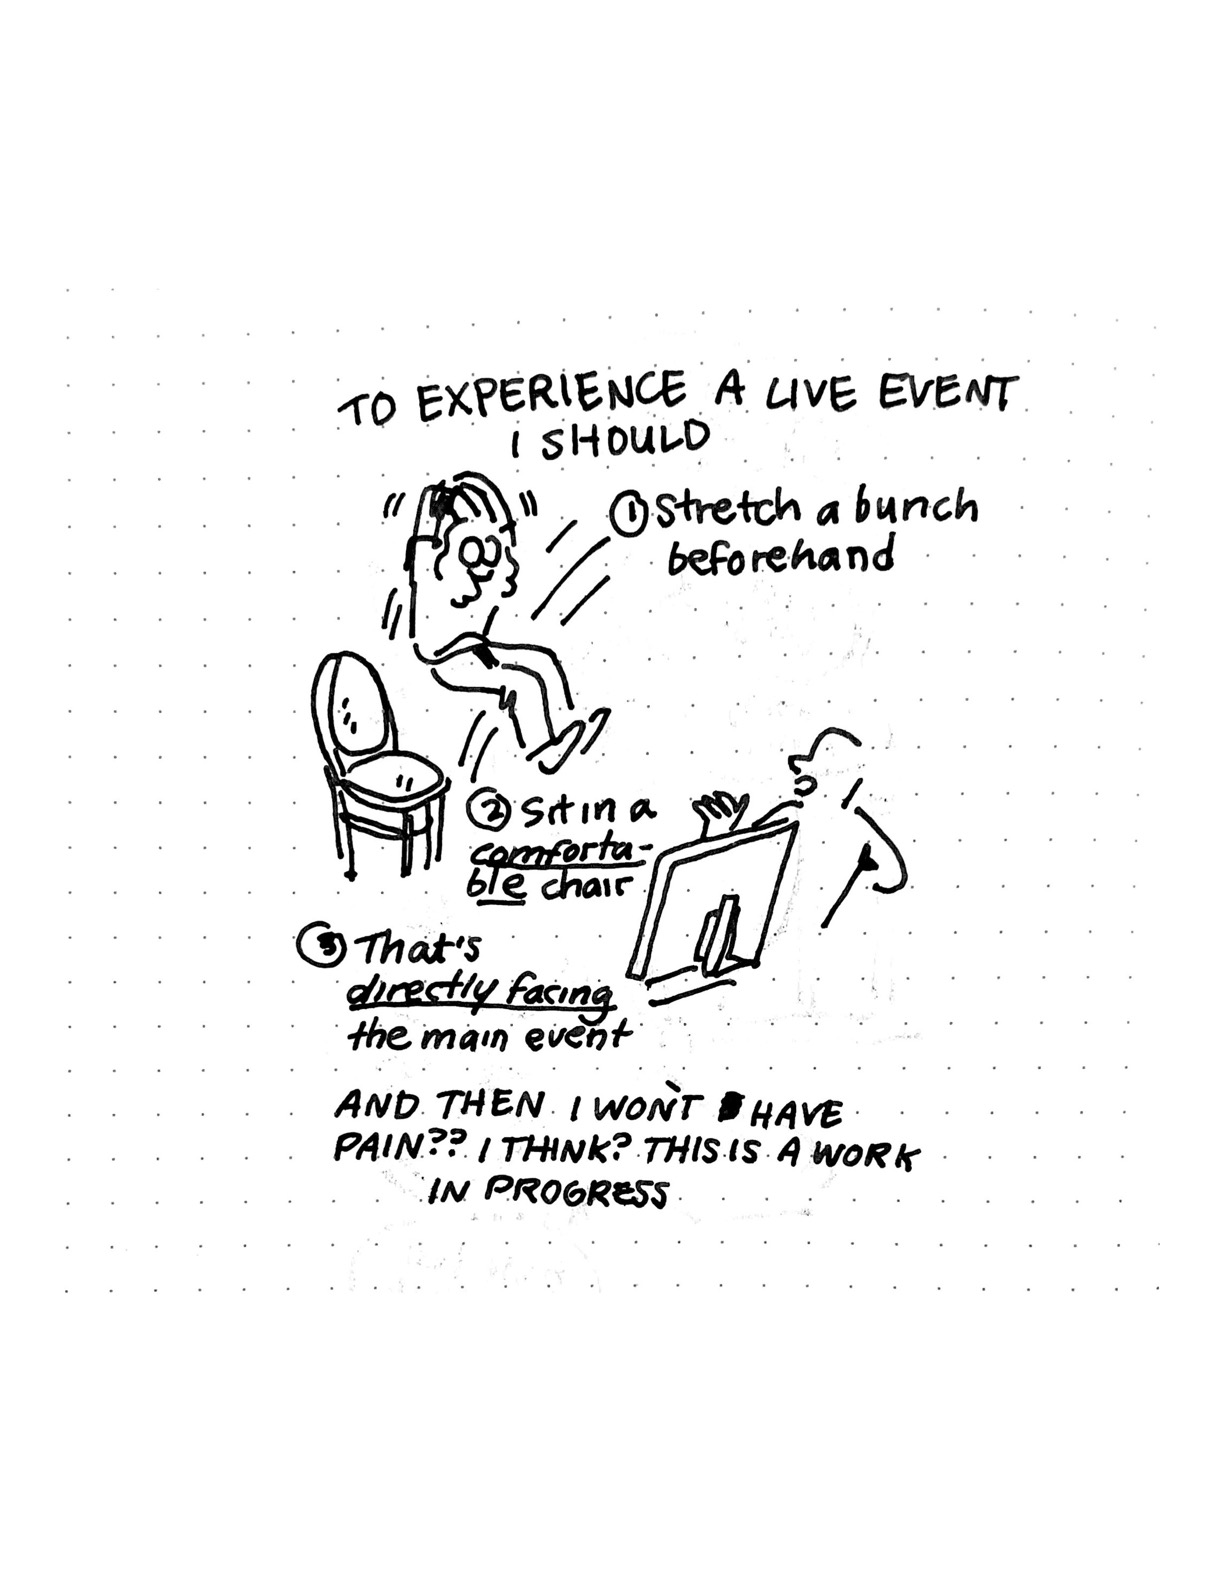 TO EXPERIENCE A LIVE EVENT
I SHOULD
① Stretch a bunch
beforehand
② Sit in a
comforta-
ble chair
③ That's
directly facing
the main event
AND THEN I WON'T HAVE
PAIN?? I THINK? THIS IS A WORK
IN PROGRESS